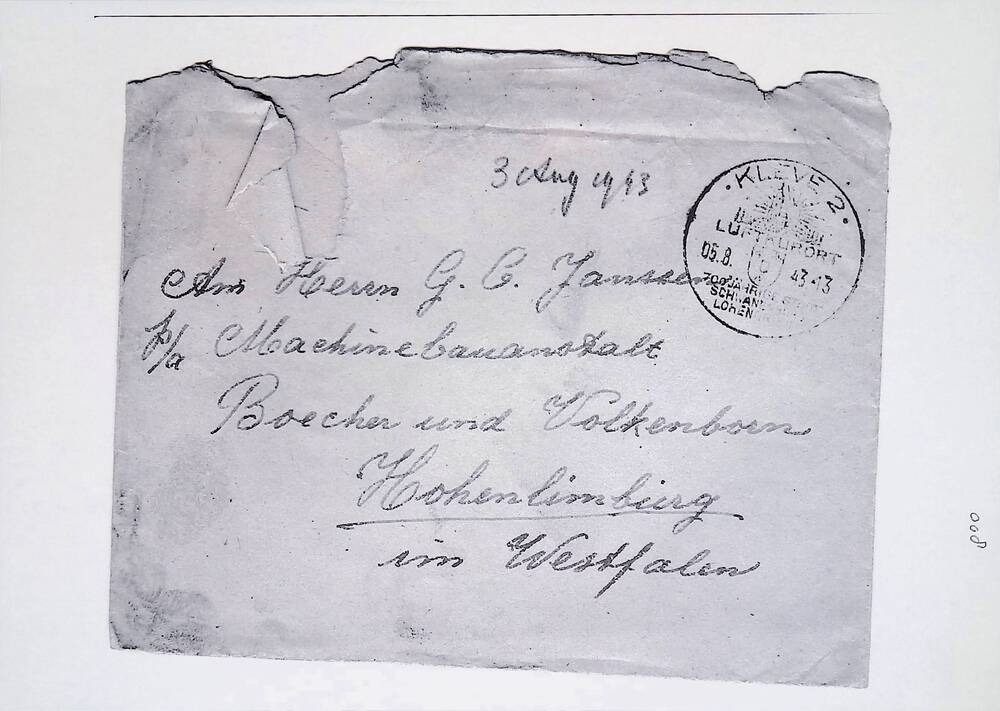 3 Aug 1943
· KLEVE 2 ·
LUFTKURORT
05.8. 43.-13
700 JÄHRIGE
SCHWAN
LOHEN
An Herrn G. C. Janssen
p/a Machinebauanstalt
Boecher und Volkenborn
Hohenlimburg
im Westfalen
008